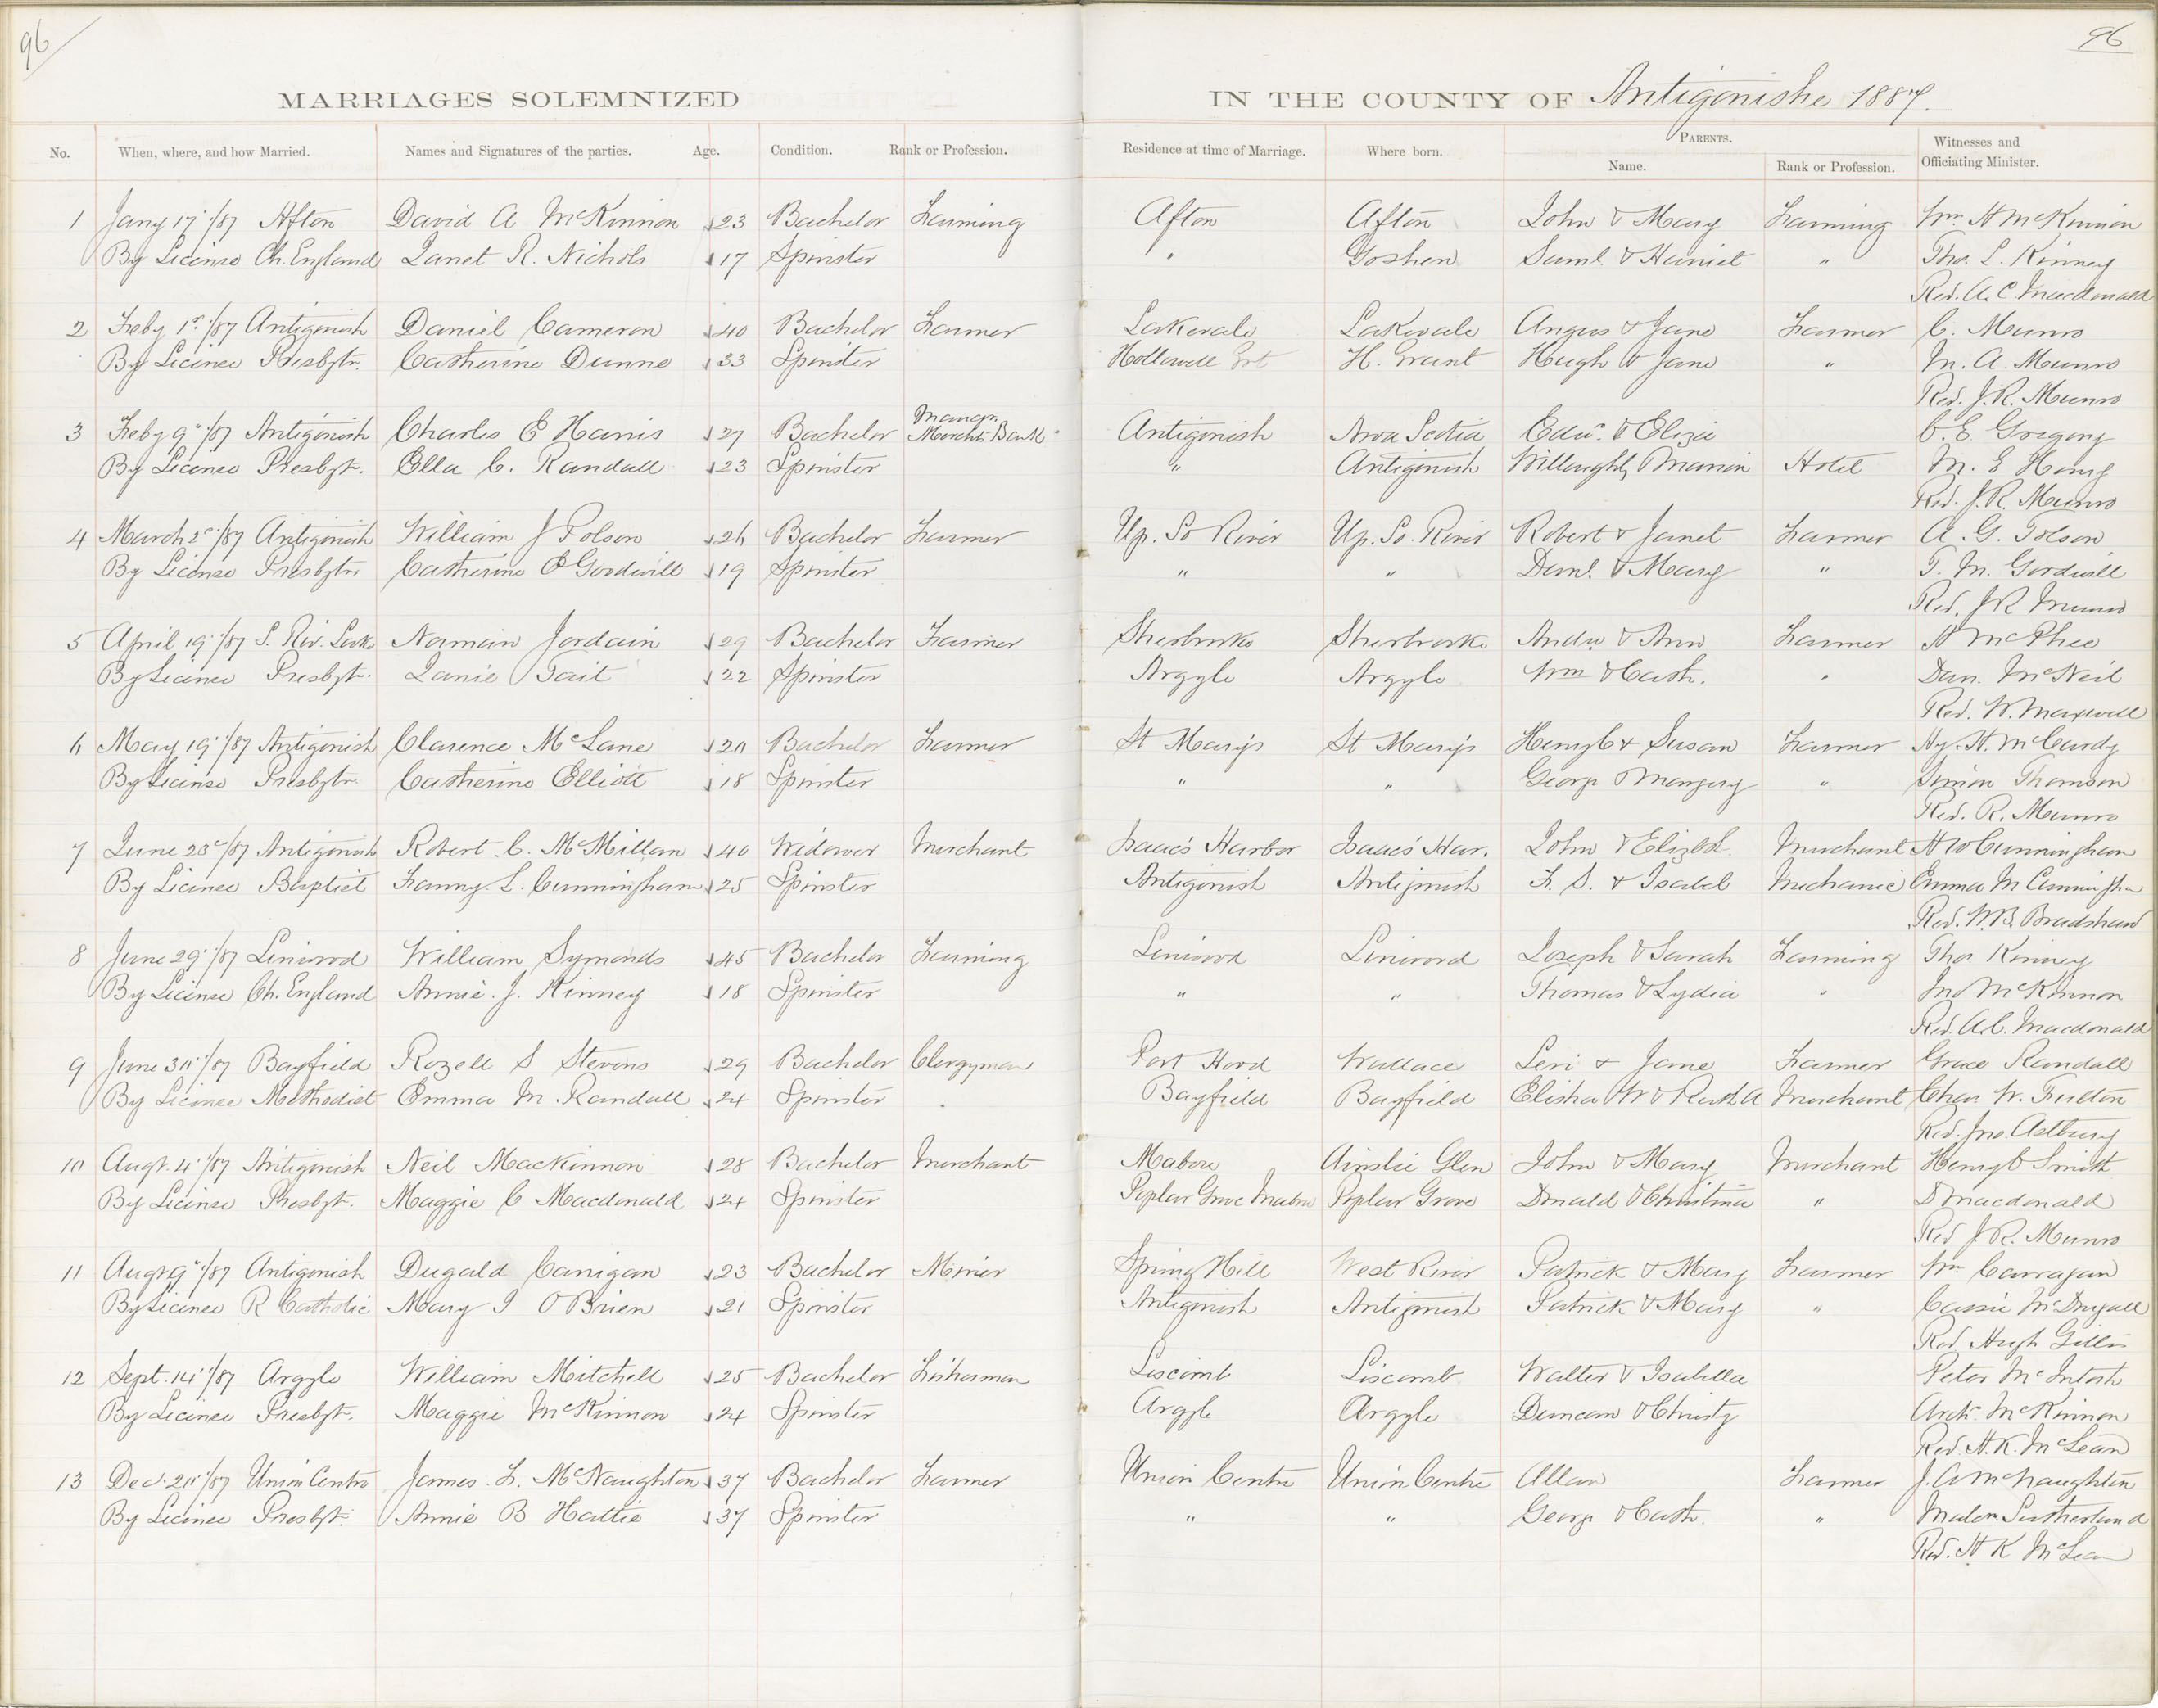 96
96
MARRIAGES SOLEMNIZED IN THE COUNTY OF Antigonishe 1887.
No. When, where, and how Married. Names and Signatures of the parties. Age. Condition. Rank or Profession. Residence at time of Marriage. Where born. PARENTS. Name. Rank or Profession. Witnesses and Officiating Minister.
1 Jany 17"/87 Afton David A McKinnon 23 Bachelor Farming Afton Afton John & Mary Farming Wm. H McKinnon
By License Ch. England Janet R. Nichols 17 Spinster " Goshen Saml. & Harriet " Thos. L. Kinney
Rev. A. C. Macdonald
2 Feby 1st/87 Antigonish Daniel Cameron 40 Bachelor Farmer Lakevale Lakevale Angus & Jane Farmer C. Munro
By License Presbytr. Catherine Dunno 33 Spinster Hollowell Grt H. Grant Hugh & Jane " M. A. Munro
Rev. J. R. Munro
3 Feby 9"/87 Antigonish Charles E Harris 27 Bachelor Mangr. Merchts. Bank Antigonish Nova Scotia Edwd. & Eliza C. E Gregory
By License Presbyt. Ella C. Randall 23 Spinster " Antigonish Willoughby Marion Hotel M. E Henry
Rev. J. R. Munro
4 March 2d/87 Antigonish William J Polson 26 Bachelor Farmer Up. So River Up. So. River Robert & Janet Farmer A. G. Polson
By License Presbytr Catherine E Goodwill 19 Spinster " " Danl. & Mary " T. M. Goodwill
Rev. J R Munro
5 April 19"/87 S. Riv. Lake Norman Jordain 29 Bachelor Farmer Sherbrooke Sherbrooke Andw & Ann Farmer H McPhee
By License Presbyt. Janie Tait 22 Spinster Argyle Argyle Wm & Cath. " Dan. McNeil
Rev. W. Maxwell
6 May 19"/87 Antigonish Clarence McLane 20 Bachelor Farmer St Mary's St Mary's Henry C & Susan Farmer Hy. H. McCurdy
By License Presbytr. Catherine Elliott 18 Spinster " " George & Margery " Simon Thomson
Rev. R. Munro
7 June 23d/87 Antigonish Robert C. McMillan 40 Widower Merchant Isaac's Harbor Isaacs' Har. John & Elizbth. Merchant H W Cunningham
By License Baptist Fanny L. Cunningham 25 Spinster Antigonish Antigonish F. S. & Isabel Mechanic Emma M Cunningham
Rev. W. B. Bradshaw
8 June 29"/87 Linwood William Symonds 45 Bachelor Farming Linwood Linwood Joseph & Sarah Farming Thos. Kinney
By License Ch. England Annie. J. Kinney 18 Spinster " " Thomas & Lydia " Jno McKinnon
Rev. A. C. Macdonald
9 June 30"/87 Bayfield Rozell S Stevens 29 Bachelor Clergyman Port Hood Wallace Levi & Jane Farmer Grace Randall
By License Methodist Emma M. Randall 24 Spinster Bayfield Bayfield Elisha W & Ruth A Merchant Chas. W. Fulton
Rev. Jno. Astbury
10 Augt. 4"/87 Antigonish Neil MacKinnon 28 Bachelor Merchant Mabou Ainslie Glen John & Mary Merchant Henry C Smith
By License Presbyt. Maggie C Macdonald 24 Spinster Poplar Grove Mabou Poplar Grove Donald & Christina " D Macdonald
Rev J. R. Munro
11 Augt 9"/87 Antigonish Dugald Carrigan 23 Bachelor Miner Spring Hill West River Patrick & Mary Farmer Wm Carragan
By License R Catholic Mary J OBrien 21 Spinster Antigonish Antigonish Patrick & Mary " Cassie McDugall
Rev Hugh Gillis
12 Sept. 14"/87 Argyle William Mitchell 25 Bachelor Fisherman Liscomb Liscomb Walter & Isabella Peter McIntosh
By License Presbyt. Maggie McKinnon 24 Spinster Argyle Argyle Duncan & Christy Arch. McKinnon
Rev. H. K. McLean
13 Dec. 20"/87 Union Centre James. F. McNaughton 37 Bachelor Farmer Union Centre Union Centre Allan Farmer J. A McNaughton
By License Presbyt. Annie B Hattie 37 Spinster " " George & Cath. " Malcm. Sutherland
Rev. H K McLean